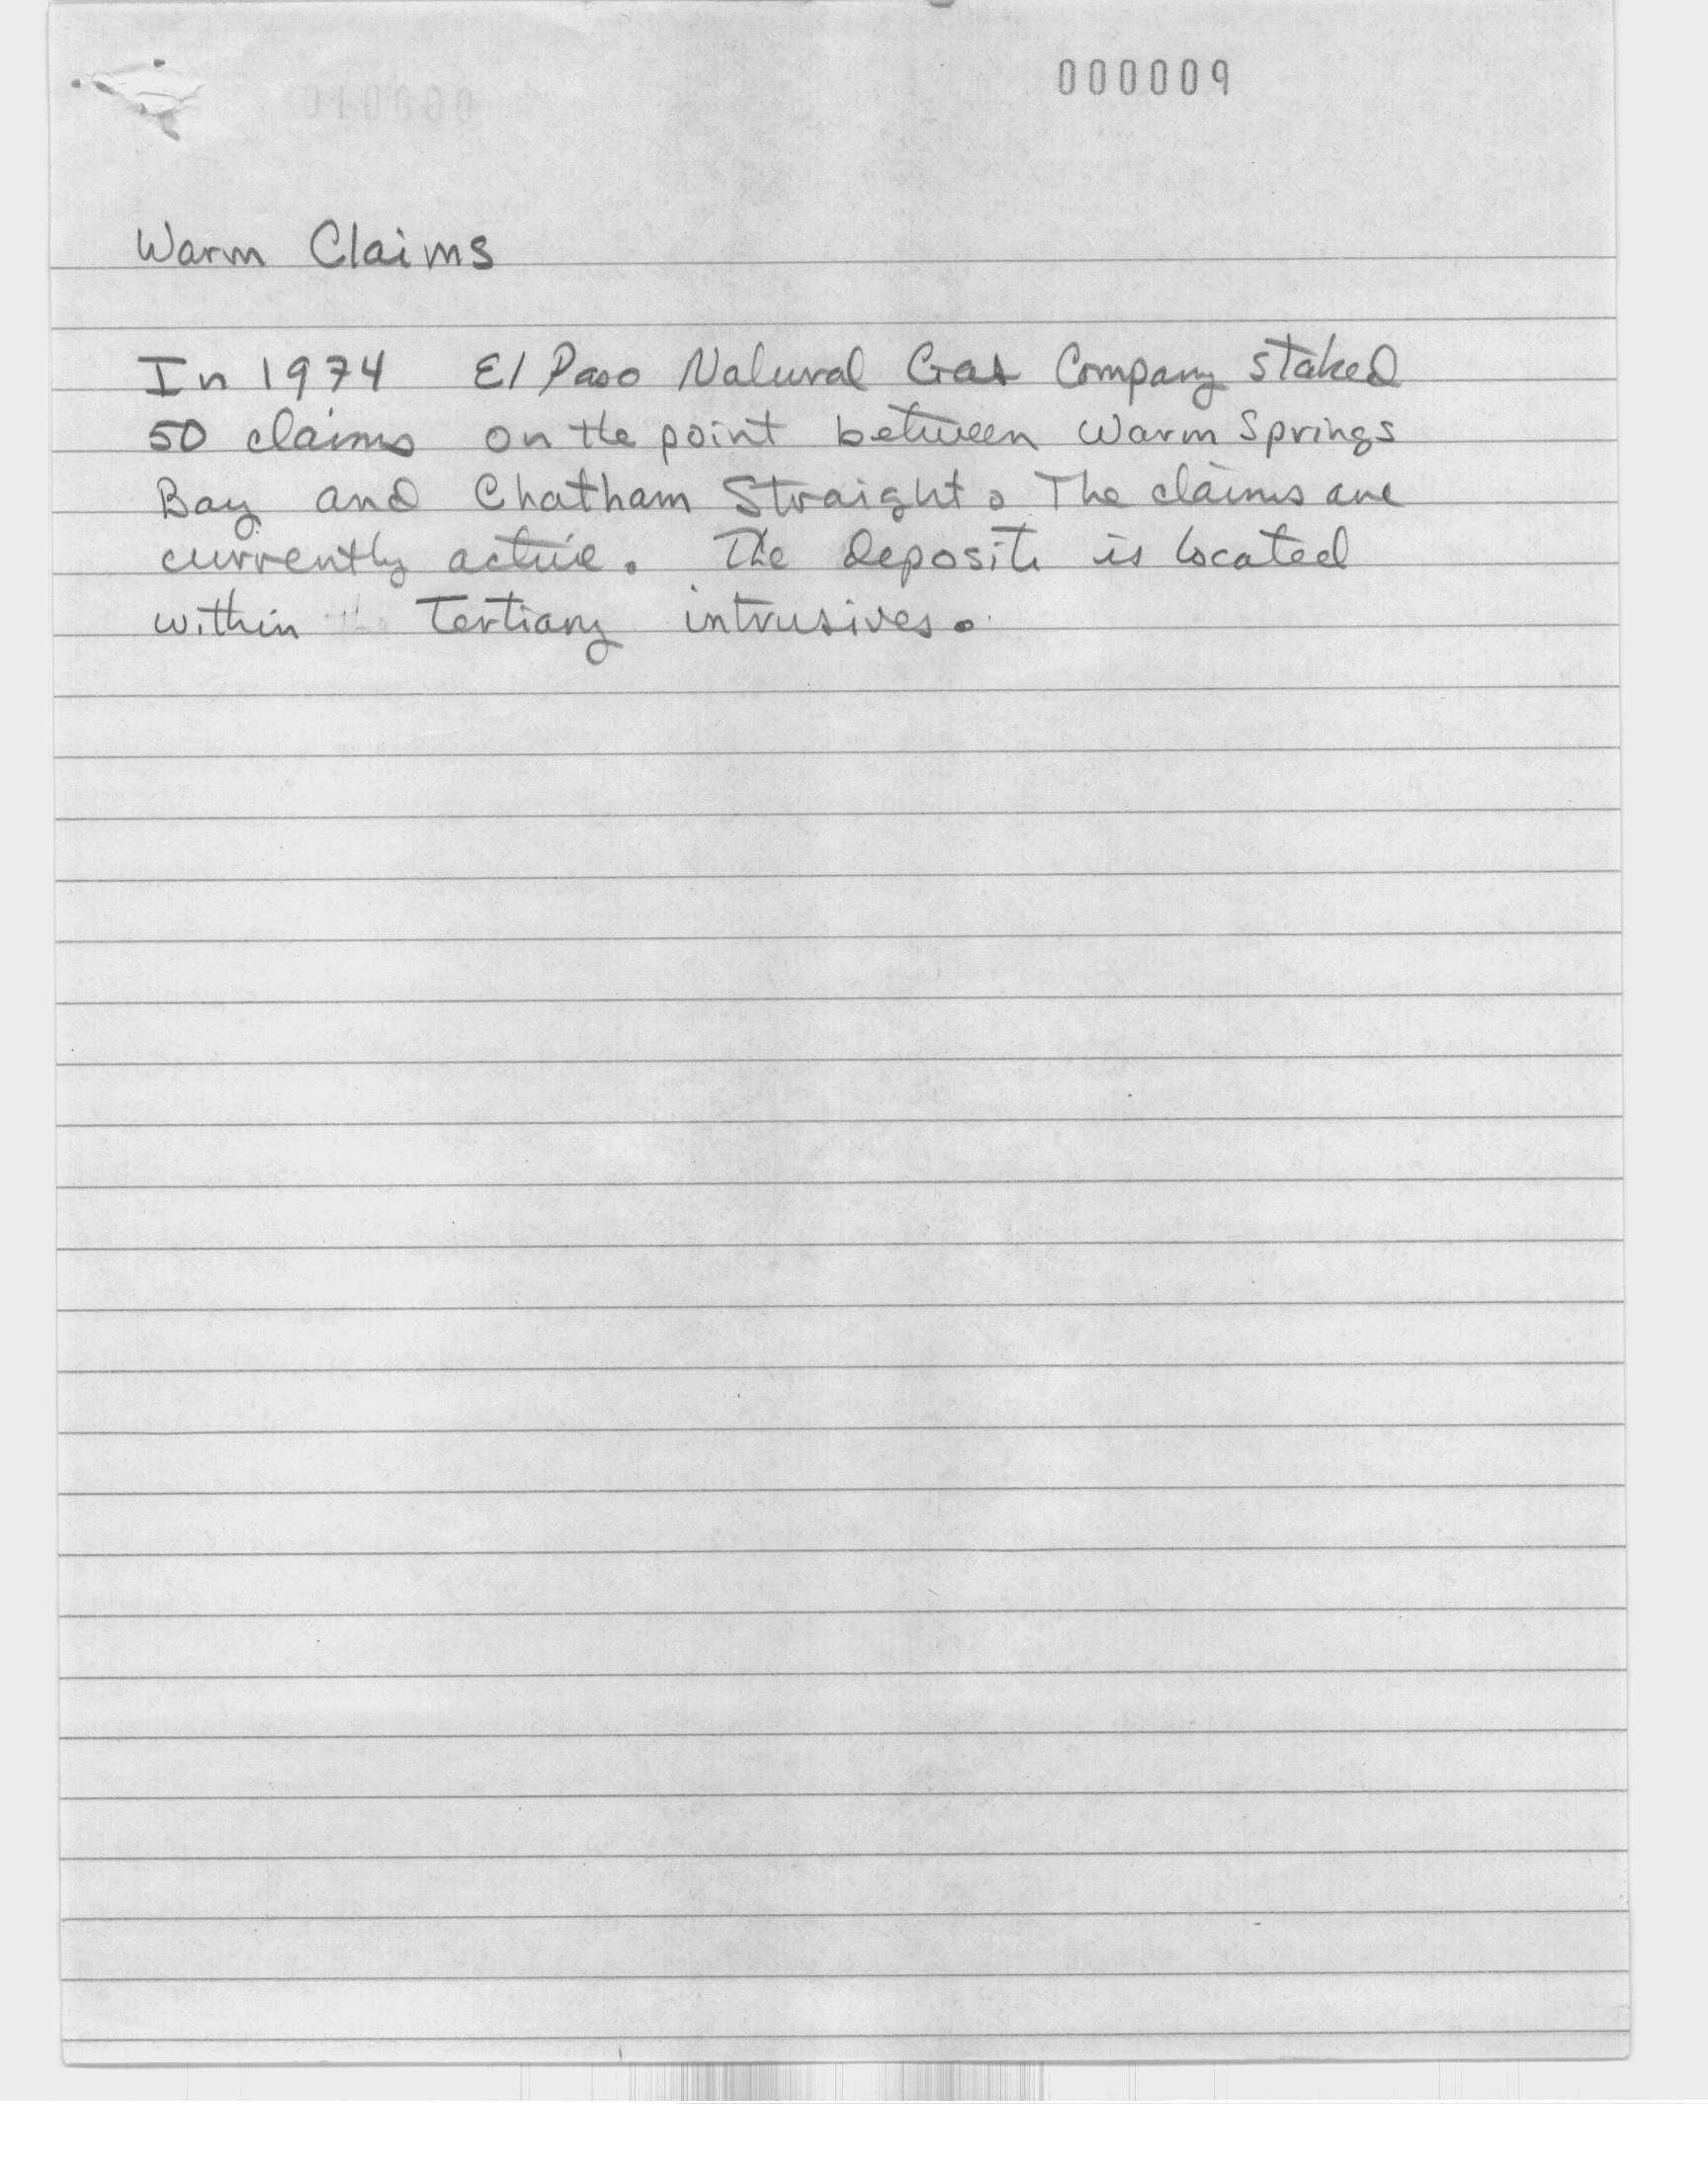 000009
Warm Claims
In 1974 El Paso Natural Gas Company staked
50 claims on the point between Warm Springs
Bay and Chatham Straight. The claims are
currently active. The deposite is located
within Tertiary intrusives.